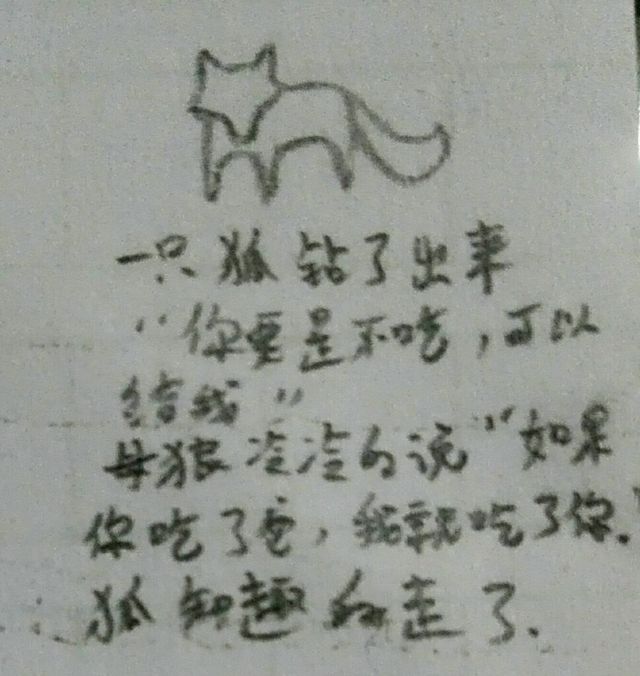 一只狐钻了出来
“你要是不吃，可以
给我”
母狼冷冷的说“如果
你吃了它，我就吃了你.”
狐知趣的走了.